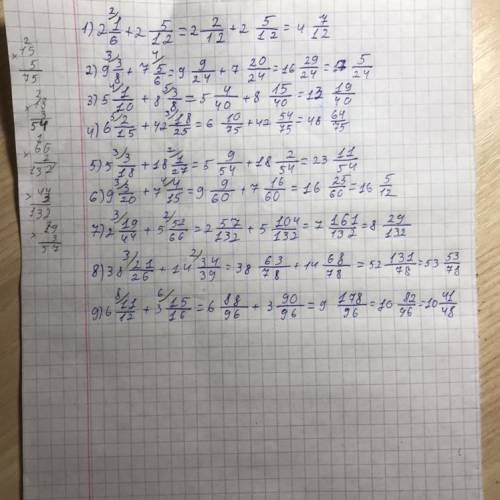 1) 2 1/6 + 2 5/12 = 2 2/12 + 2 5/12 = 4 7/12
2) 9 3/8 + 7 5/6 = 9 9/24 + 7 20/24 = 16 29/24 = 17 5/24
3) 5 1/10 + 8 3/8 = 5 4/40 + 8 15/40 = 13 19/40
4) 6 2/15 + 42 18/25 = 6 10/75 + 42 54/75 = 48 64/75
5) 5 3/18 + 18 1/27 = 5 9/54 + 18 2/54 = 23 11/54
6) 9 3/20 + 7 4/15 = 9 9/60 + 7 16/60 = 16 25/60 = 16 5/12
7) 2 19/44 + 5 52/66 = 2 57/132 + 5 104/132 = 7 161/132 = 8 29/132
8) 38 21/26 + 14 34/39 = 38 63/78 + 14 68/78 = 52 131/78 = 53 53/78
9) 6 11/12 + 3 15/16 = 6 88/96 + 3 90/96 = 9 178/96 = 10 82/96 = 10 41/48